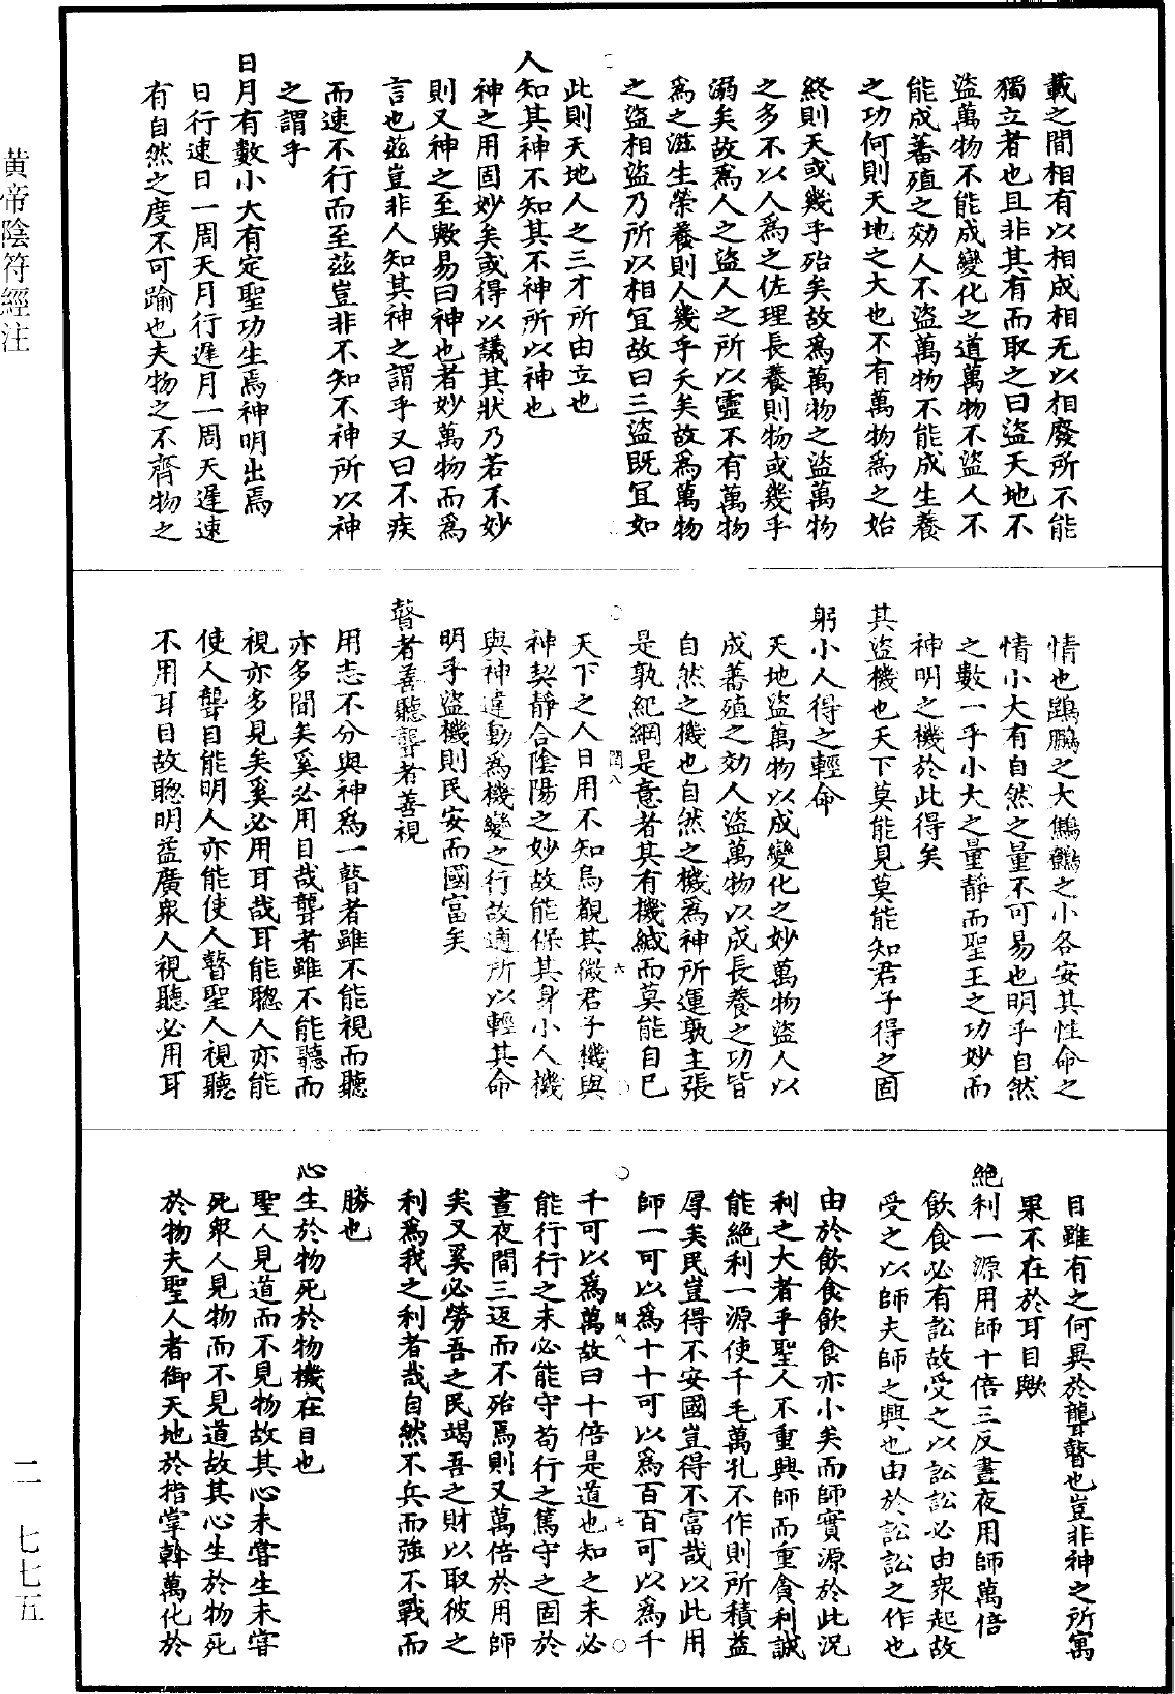 載之間相有以相成相无以相廢所不能
獨立者也且非其有而取之曰盜天地不
盜萬物不能成變化之道萬物不盜人不
能成蕃殖之効人不盜萬物不能成生養
之功何則天地之大也不有萬物爲之始
終則天或幾乎殆矣故爲萬物之盜萬物
之多不以人爲之佐理長養則物或幾乎
溺矣故爲人之盜人之所以靈不有萬物
爲之滋生榮養則人幾乎夭矣故爲萬物
之盜相盜乃所以相宜故曰三盜既宜如
此則天地人之三才所由立也
人知其神不知其不神所以神也
神之用固妙矣或得以議其狀乃若不妙
則又神之至歟易曰神也者妙萬物而爲
言也茲豈非人知其神之謂乎又曰不疾
而速不行而至茲豈非不知不神所以神
之謂乎
日月有數小大有定聖功生焉神明出焉
日行速日一周天月行遲月一周天遲速
有自然之度不可踰也夫物之不齊物之
情也鵾鵬之大鷦鷯之小各安其性命之
情小大有自然之量不可易也明乎自然
之數一乎小大之量靜而聖王之功妙而
神明之機於此得矣
其盜機也天下莫能見莫能知君子得之固
躬小人得之輕命
天地盜萬物以成變化之妙萬物盜人以
成蕃殖之効人盜萬物以成長養之功皆
自然之機也自然之機爲神所運孰主張
是孰紀綱是意者其有機緘而莫能自已
天下之人日用不知烏觀其微君子機與
神契靜合陰陽之妙故能保其身小人機
與神違動爲機變之行故適所以輕其命
明乎盜機則民安而國富矣
瞽者善聽聾者善視
用志不分與神爲一瞽者雖不能視而聽
亦多聞矣奚必用目哉聾者雖不能聽而
視亦多見矣奚必用耳哉耳能聰人亦能
使人聾目能明人亦能使人瞽聖人視聽
不用耳目故聰明益廣衆人視聽必用耳
目雖有之何異於聾瞽也豈非神之所寓
果不在於耳目歟
絶利一源用師十倍三反晝夜用師萬倍
飲食必有訟故受之以訟訟必由衆起故
受之以師夫師之興也由於訟訟之作也
由於飲食飲食亦小矣而師實源於此況
利之大者乎聖人不重興師而重貪利誠
能絶利一源使千毛萬孔不作則所積益
厚矣民豈得不安國豈得不富哉以此用
師一可以爲十十可以爲百百可以爲千
千可以爲萬故曰十倍是道也知之未必
能行行之未必能守苟行之篤守之固於
晝夜間三返而不殆焉則又萬倍於用師
矣又奚必勞吾之民竭吾之財以取彼之
利爲我之利者哉自然不兵而強不戰而
勝也
心生於物死於物機在目也
聖人見道而不見物故其心未甞生未甞
死衆人見物而不見道故其心生於物死
於物夫聖人者御天地於指掌斡萬化於
黃帝陰符經注
二 七七五
閏八 六
閏八 七